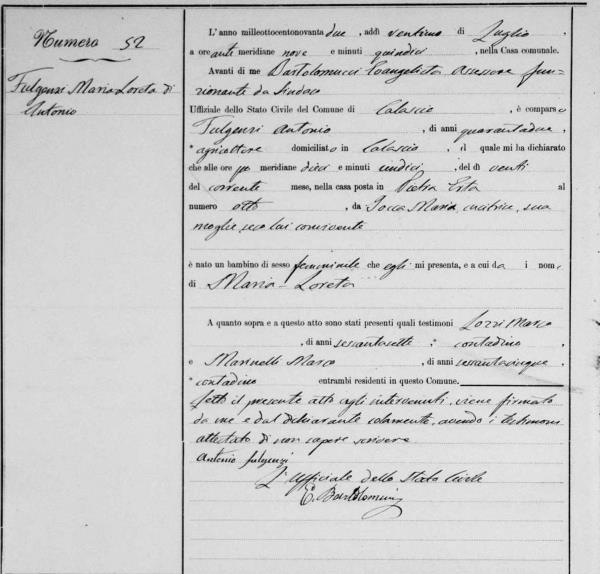 Numero 52
Fulgenzi Maria Loreta di
Antonio
L'anno milleottocentonovantadue, addì ventuno di Luglio
a ore anti meridiane nove e minuti quindici, nella Casa comunale.
Avanti di me Bartolomucci Evangelista Assessore fun-
zionante da Sindaco
Uffiziale dello Stato Civile del Comune di Calascio, è comparso
Fulgenzi Antonio, di anni quarantadue,
agricoltore domiciliato in Calascio, il quale mi ha dichiarato
che alle ore po meridiane dieci e minuti undici, del dì venti
del corrente mese, nella casa posta in Pietra Erta al
numero otto, da Jocca Maria, cucitrice, sua
moglie, seco lui convivente
è nato un bambino di sesso femminile che egli mi presenta, e a cui dà i nomi
di Maria-Loreta
A quanto sopra e a questo atto sono stati presenti quali testimoni Lozzi Marco
, di anni sessantasette, contadino,
e Marinelli Marco, di anni sessantacinque,
contadino entrambi residenti in questo Comune.
Letto il presente atto agli intervenuti, viene firmato
da me e dal dichiarante solamente, avendo i testimoni
attestato di non sapere scrivere
Antonio fulgenzi
L'Uffiziale dello Stato Civile
E. Bartolomucci